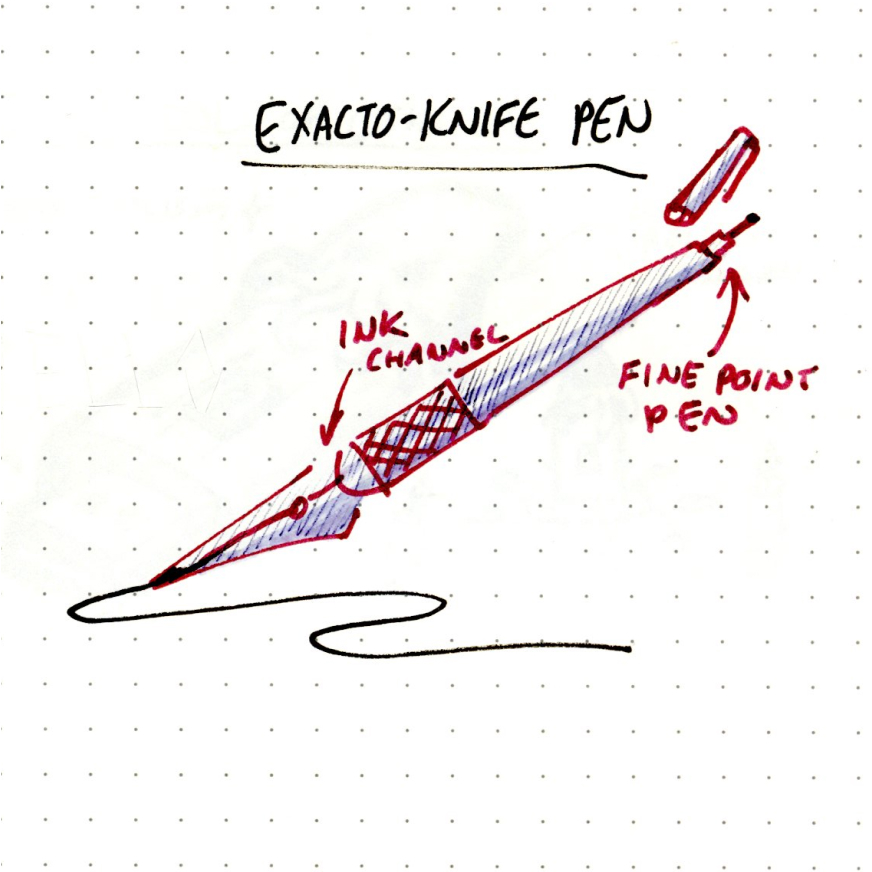 EXACTO-KNIFE PEN
INK
CHANNEL
FINE POINT
PEN